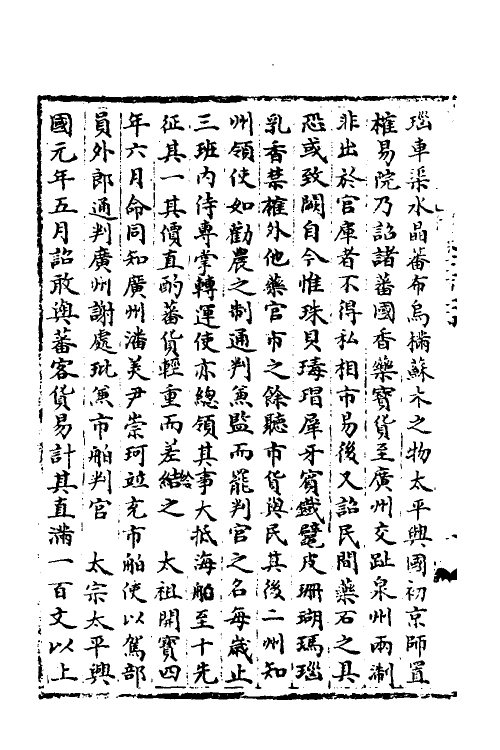 瑙車渠水晶蕃布烏樠蘇木之物太平興國初京師置
榷易院乃詔諸蕃國香藥寶貨至廣州交趾泉州兩浙
非出於官庫者不得私相市易後又詔民間藥石之具
恐或致闕自今惟珠貝瑇瑁犀牙賓鐵鼊皮珊瑚瑪瑙
乳香禁榷外他藥官市之餘聽市貨與民其後二州知
州領使如勸農之制通判兼監而罷判官之名每歲止
三班內侍專掌轉運使亦總領其事大抵海舶至十先
征其一其價直酌蕃貨輕重而差給之　太祖開寶四
年六月命同知廣州潘美尹崇珂並充市舶使以駕部
員外郎通判廣州謝處玭兼市舶判官　太宗太平興
國元年五月詔敢與蕃客貨易計其直滿一百文以上